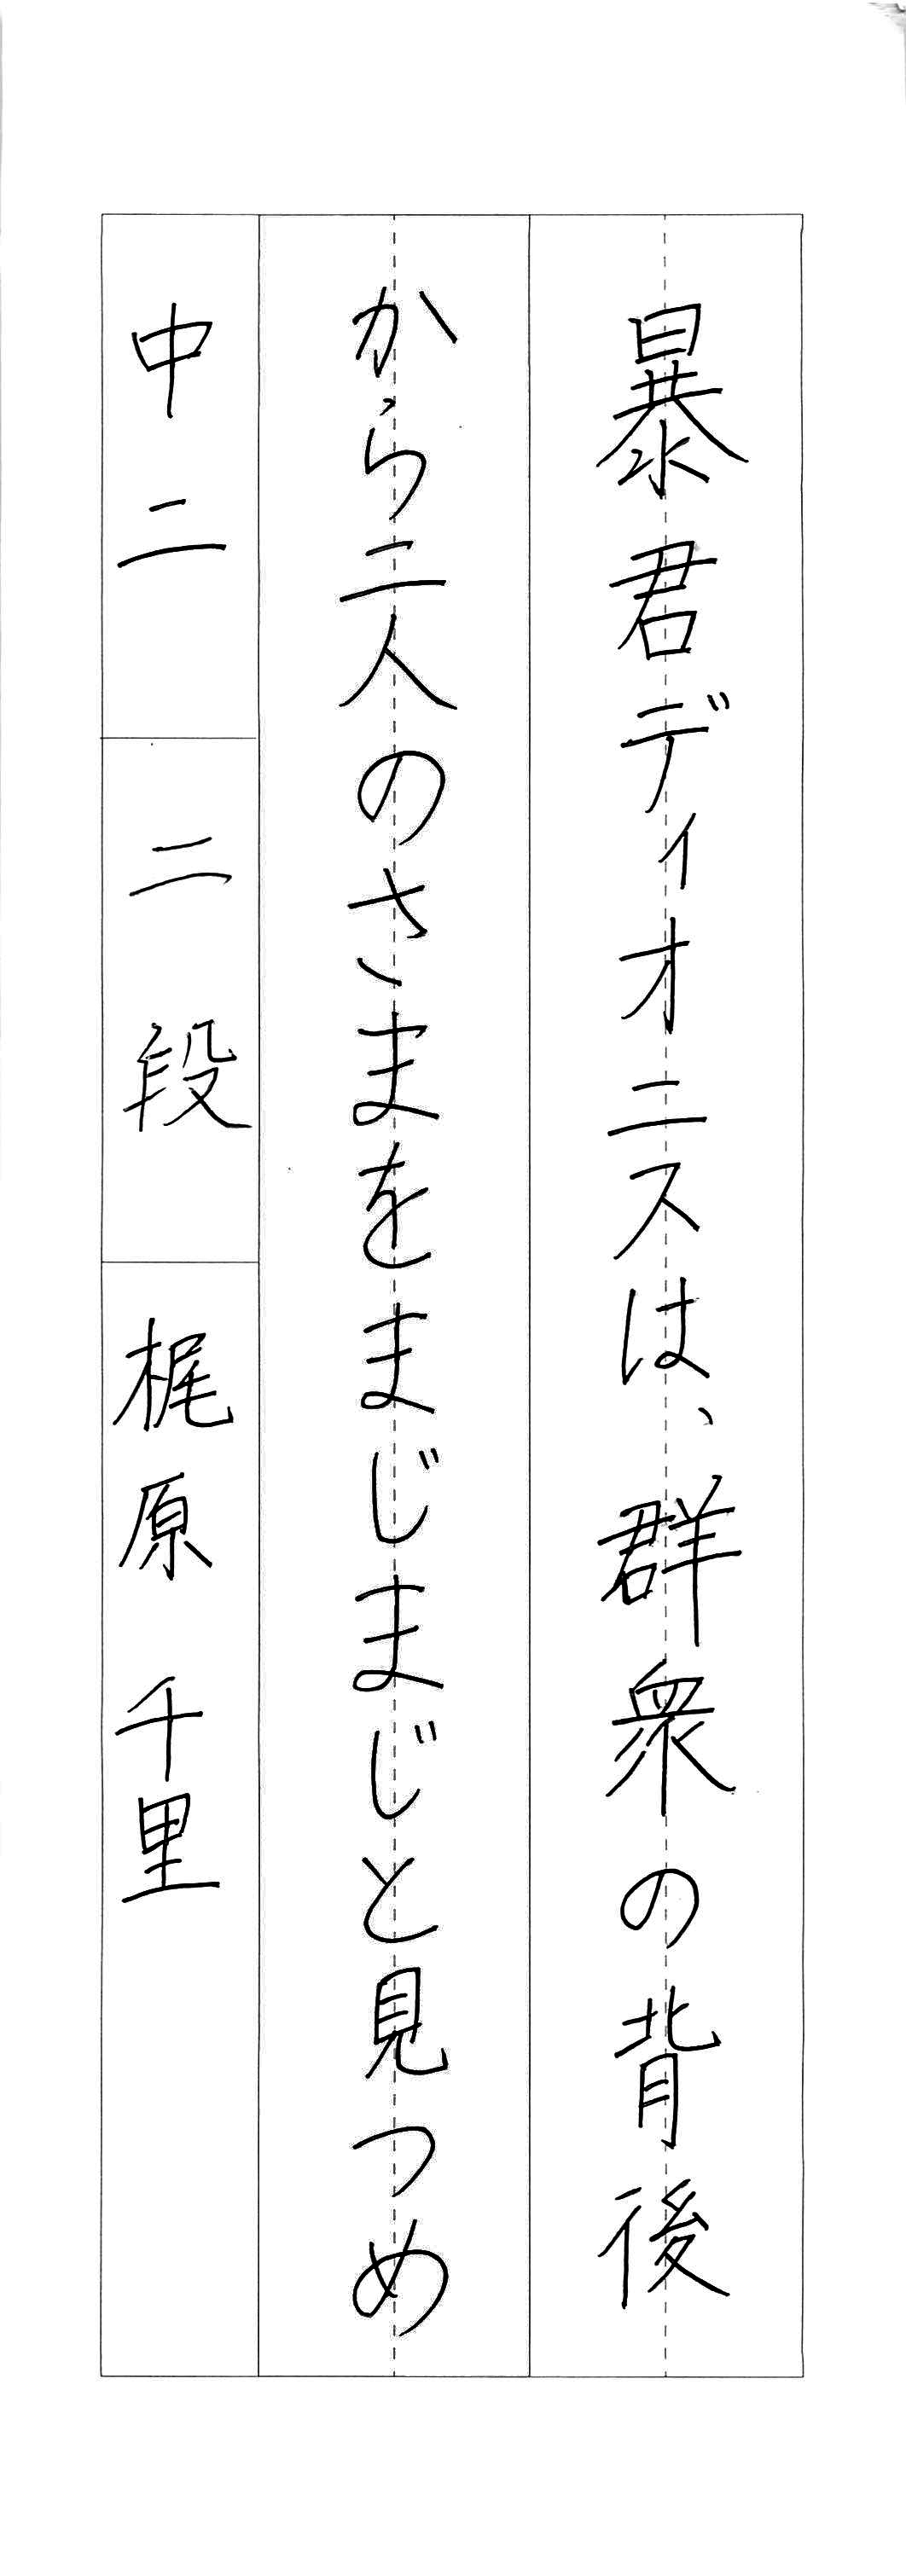 暴君ディオニスは、群衆の背後
から二人のさまをまじまじと見つめ
中二 二段 梶原 千里